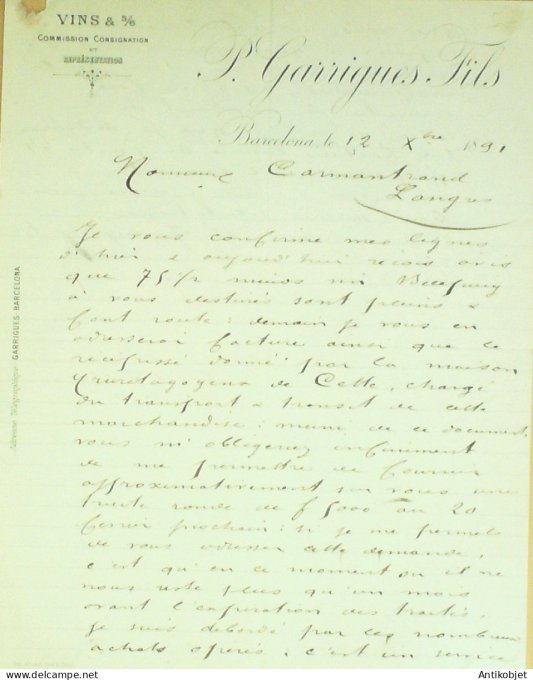 VINS & 3/6
COMMISSION CONSIGNATION
ET
REPRÉSENTATION
P. Garrigues Fils
Barcelona, le 12 Xbre 1891
Monsieur Carmantrand
Langres
Je vous confirme mes lignes
d'hier & aujourd'hui reçois avis
que 75 1/2 muids vin
à vous destinés sont pleins &
font route : demain je vous en
adresserai facture ainsi que le
récépissé donné par la maison
de Cette, chargé
du transport & transit de cette
marchandise : muni de ce document
vous m'obligeriez infiniment
de me permettre de fournir
approximativement sur vous une
traite ronde de f 5000 au 20
février prochain : si je me permets
de vous adresser cette demande,
c'est qu'en ce moment où il ne
nous reste plus qu'un mois
avant l'expiration des traités,
je suis débordé par les nombreux
achats opérés, c'est un service
Adresse Télégraphique: GARRIGUES BARCELONA
Antikobjet